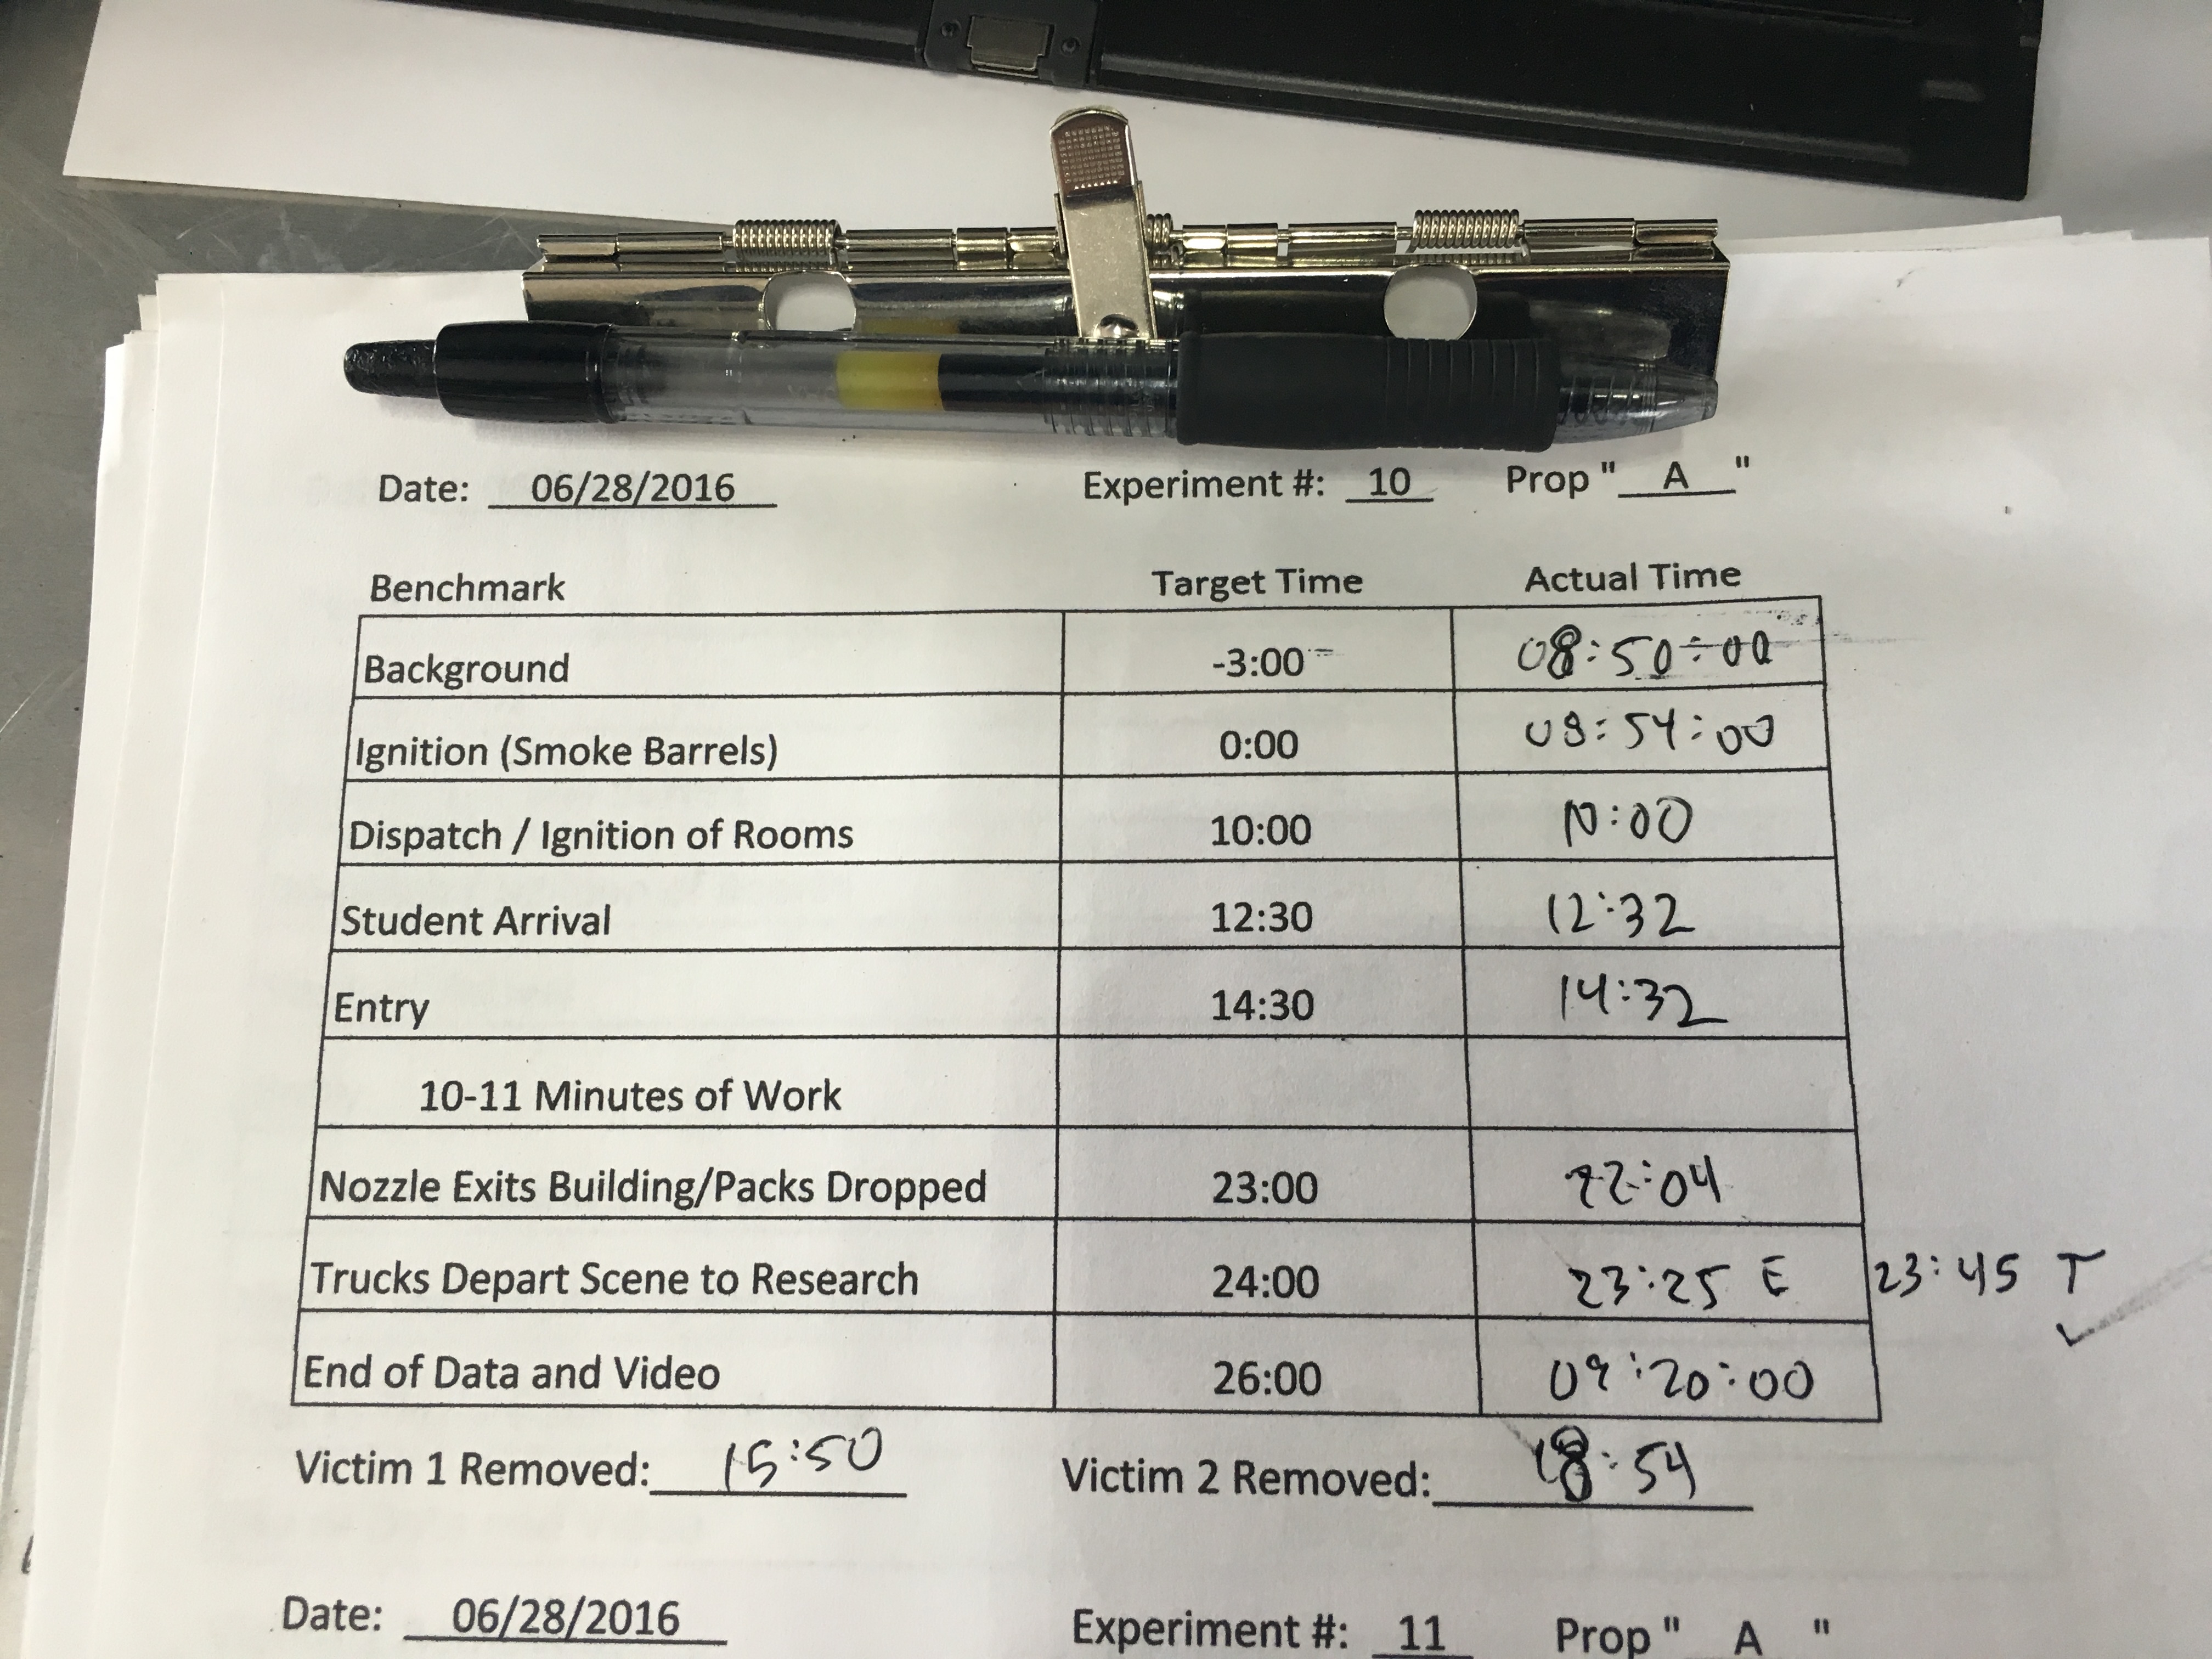 Date: 06/28/2016 Experiment #: 10 Prop " A "
Benchmark Target Time Actual Time
Background -3:00 08:50:00
Ignition (Smoke Barrels) 0:00 08:54:00
Dispatch / Ignition of Rooms 10:00 10:00
Student Arrival 12:30 12:32
Entry 14:30 14:32
10-11 Minutes of Work
Nozzle Exits Building/Packs Dropped 23:00 22:04
Trucks Depart Scene to Research 24:00 23:25 E 23:45 T
End of Data and Video 26:00 09:20:00
Victim 1 Removed: 15:50 Victim 2 Removed: 18:54
Date: 06/28/2016 Experiment #: 11 Prop " A "